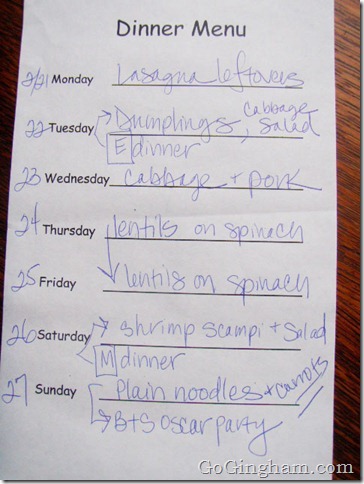 Dinner Menu
2/21 Monday Lasagna leftovers
22 Tuesday Dumplings, Cabbage Salad
E dinner
23 Wednesday Cabbage + pork
24 Thursday lentils on spinach
25 Friday lentils on spinach
26 Saturday shrimp scampi + Salad
M dinner
27 Sunday Plain noodles + carrots
B+S Oscar party
GoGingham.com